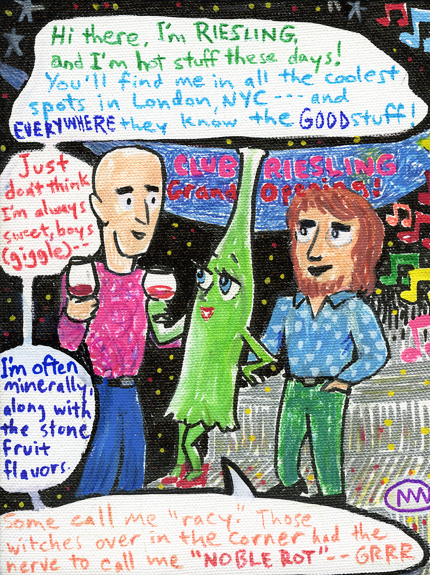 Hi there, I'm RIESLING,
and I'm hot stuff these days!
You'll find me in all the coolest
spots in London, NYC --- and
EVERYWHERE they know the GOOD stuff!
CLUB RIESLING
Grand Opening!
Just
don't think
I'm always
sweet, boys
(giggle)--
I'm often
minerally,
along with
the stone
fruit
flavors.
Some call me "racy." Those
witches over in the corner had the
nerve to call me "NOBLE ROT"-- GRRR